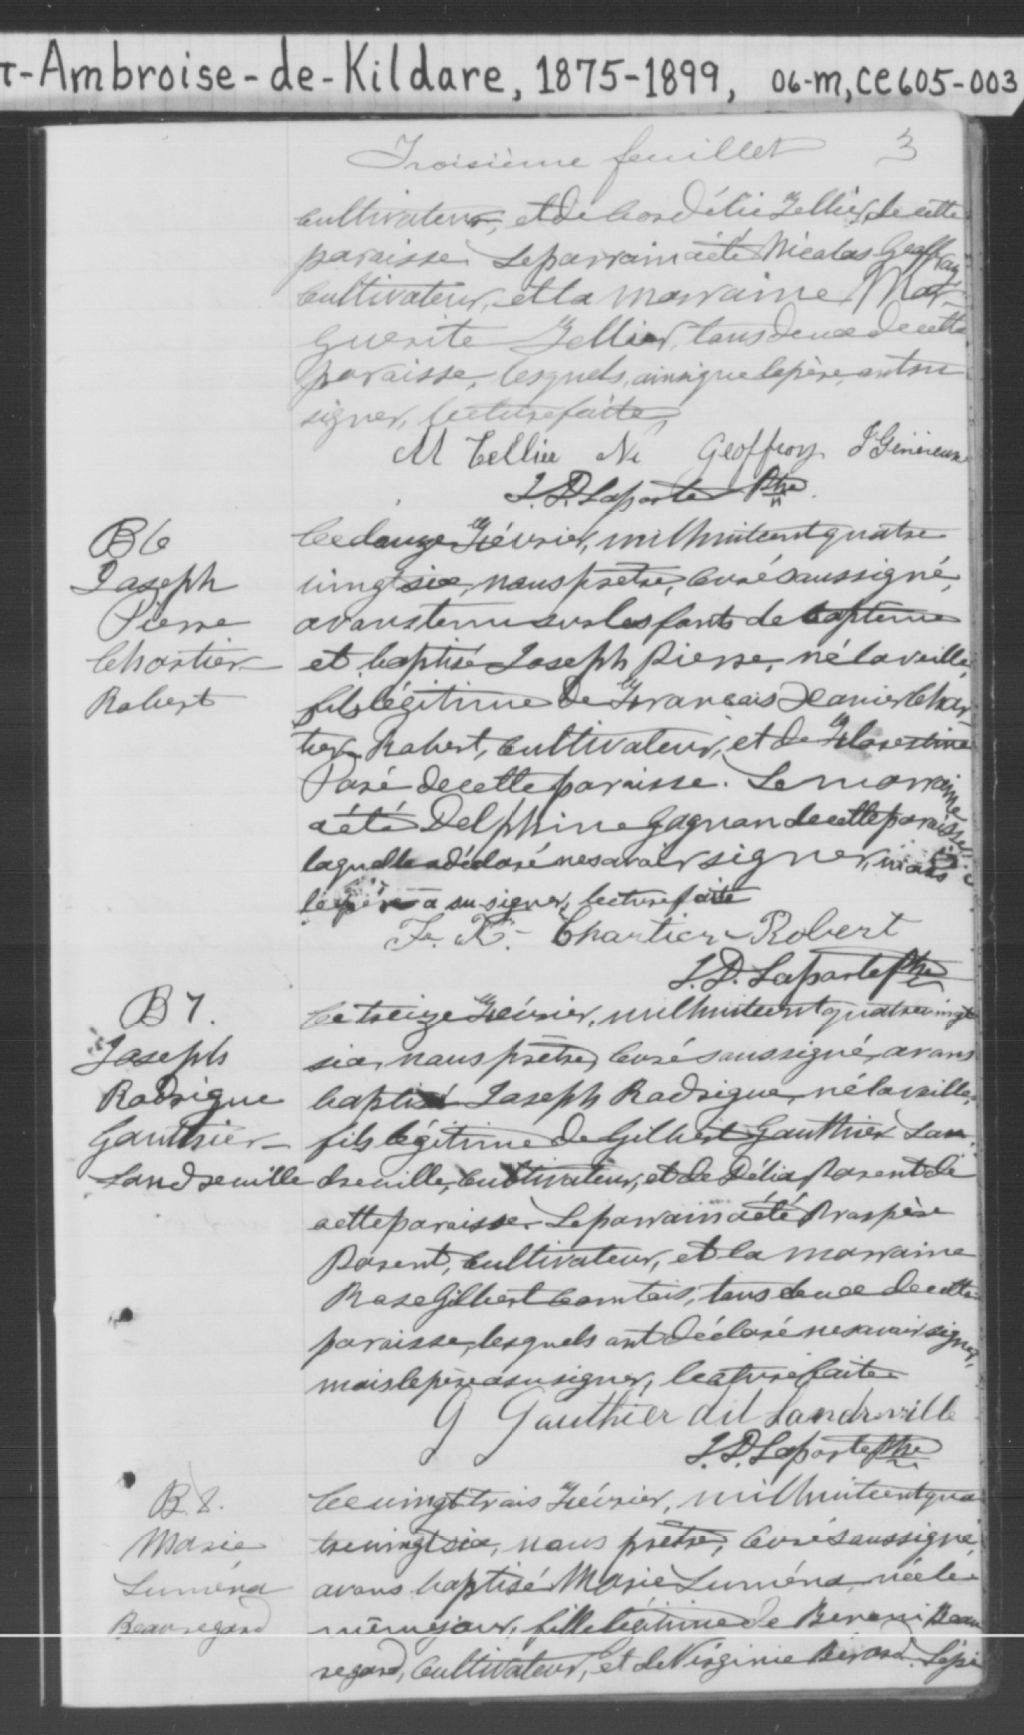 t-Ambroise-de-Kildare, 1875-1899, 06-M, CE605-003
Troisième feuillet 3
cultivateur, et de Cordélie Tellier, de cette
paroisse. Le parrain a été Nicolas Geoffroy
cultivateur, et la marraine Mar-
guerite Tellier, tous deux de cette
paroisse, lesquels, ainsi que le père, ont su
signer, lecture faite.
M Tellier N. Geoffroy J Généreux
J. D. Laporte Ptre
B 6
Joseph
Pierre
Chartier
Robert
Ce douze Février, mil huit cent quatre
vingt six, nous prêtre, Curé soussigné,
avons tenu sur les fonts de baptême
et baptisé Joseph Pierre, né la veille,
fils légitime de Francois Xavier Char-
tier Robert, cultivateur, et de Florestine
Paré de cette paroisse. Le marraine
a été Delphine Gagnon de cette paroisse
laquelle a déclaré ne savoir signer, mais
le père a su signer, lecture faite
F. X. Chartier-Robert
J. D. Laporte Ptre
B 7.
Joseph
Rodrigue
Gauthier-
Landreville
Ce treize Février, mil huit cent quatre vingt
six, nous prêtre, Curé soussigné, avons
baptisé Joseph Rodrigue, né la veille,
fils légitime de Gilbert Gauthier Lan-
dreville, cultivateur, et de Délia Parent de
cette paroisse. Le parrain a été Prospère
Parent, cultivateur, et la marraine
Rose Gilbert Comtois, tous deux de cette
paroisse, lesquels ont déclaré ne savoir signer,
mais le père a su signer, lecture faite
G Gauthier dit Landreville
J. D. Laporte Ptre
B 8.
Marie
Luména
Beauregard
Ce vingt trois Février, mil huit cent qua
tre vingt six, nous prêtre, Curé soussigné,
avons baptisé Marie Luména, née le
même jour, fille légitime de Benoni Beau
regard, cultivateur, et de Virginie Bérard Lépi